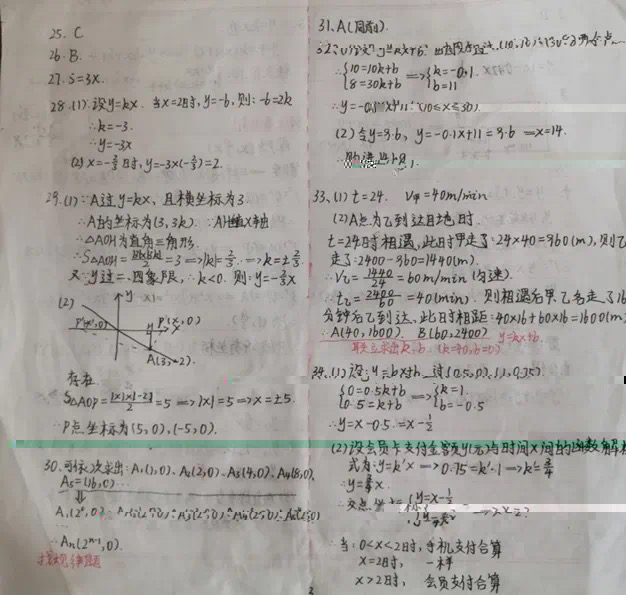 25. C
26. B.
27. S=3x.
28. (1) 设y=kx. 当x=2时, y=-6, 则: -6=2k
∴k=-3.
∴y=-3x
(2) x=-2/3时, y=-3×(-2/3)=2.
29. (1) ∵A过y=kx, 且横坐标为3
∴A的坐标为(3, 3k). ∵AH⊥x轴
∴△AOH为直角三角形.
=3 ⟹ |k|=2/3. ⟹ k=±2/3.
又∵y过二、四象限, ∴k<0. 则: y=-2/3x
(2)
y
P'(x', 0)
P(x, 0)
x
H
A(3, -2).
存在.
S△AOP=|x|×|-2|/2=5 ⟹ |x|=5 ⟹ x=±5.
∴P点坐标为(5, 0), (-5, 0).
30. 可依次求出: A₁(1, 0), A₂(2, 0), A₃(4, 0), A₄(8, 0),
A₅=(16, 0)
A₁(2⁰, 0)
∴Aₙ(2ⁿ⁻¹, 0).
找规律题
31. A
∴{10=10k+b ⟹ {k=-0.1
8=30k+b b=11
(10≤x≤30).
(2) 令y=9.6, y=-0.1x+11=9.6 ⟹ x=14.
33. (1) t=24. V甲=40m/min
(2) A点为乙到达目地时.
t=24时相遇, 此时甲走了: 24×40=960(m), 则乙
走了: 2400-960=1440(m).
∴V乙=1440/24=60m/min (匀速).
∴t乙=2400/60=40(min). 则相遇后甲乙各走了16
分钟后乙到达, 此时相距: 40×16+60×16=1600(m)
∴A(40, 1600). B(60, 2400)
y=kx+b.
联立求出k, b. (k=40, b=0)
34. (1) 设: y=kx+b, 过(0.5, 0),
∴{0=0.5k+b ⟹ {k=1
0.5=k+b b=-0.5
∴y=x-0.5=x-1/2
(2) 设会员卡支付金额y(元)与时间x间的函数解析
式为: y=k'x ⟹ 0.75=k'·1 ⟹ k'=3/4
∴y=3/4x.
{y=x-1/2
∴当: 0<x<2时, 手机支付合算
x=2时, 一样
x>2时, 会员支付合算
2